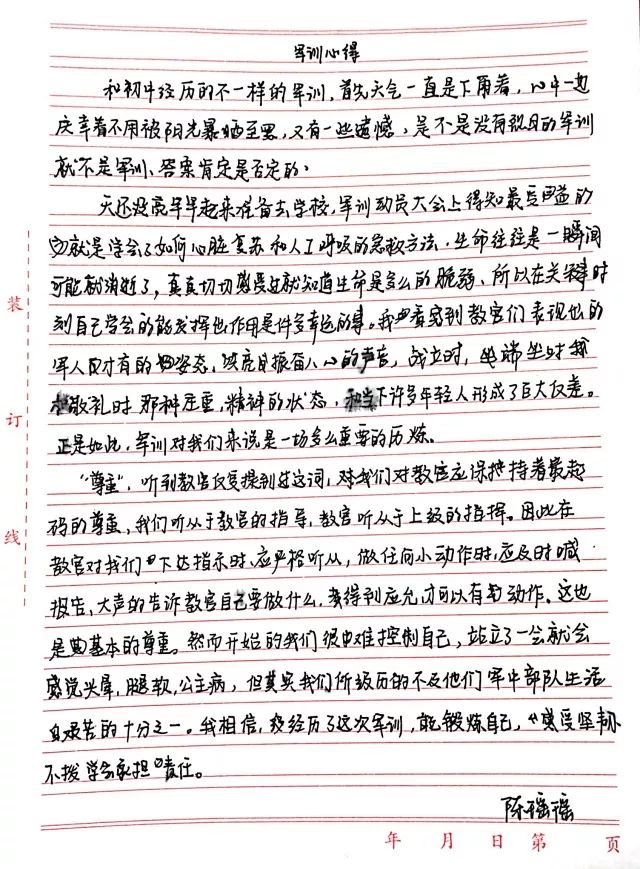 军训心得
和初中经历的不一样的军训,首先天气一直是下雨着,心中一边
庆幸着不用被阳光暴晒至黑,又有一些遗憾,是不是没有烈日的军训
就不是军训、答案肯定是否定的。
天还没亮早早起来准备去学校,军训动员大会上得知最受用益的
就是学会了如何心脏复苏和人工呼吸的急救方法,生命往往是一瞬间
可能就消逝了,真真切切感受过就知道生命是多么的脆弱、所以在关键时
刻自己学会的能发挥出作用是件多幸运的事。我也看到教官们表现出的
军人应才有的姿态,铁鹿目振奋人心的声音,战立时,坐端坐时
敬礼时那种庄重,精神的状态,和当下许多年轻人形成了巨大反差。
正是如此,军训对我们来说是一场多么重要的历炼。
“尊重”,听到教官反复提到过这词,对我们对教官应保持着最起
码的尊重,我们听从于教官的指导,教官听从于上级的指挥。因此在
教官对我们下达指示时,应严格听从,做任何小动作时,应及时喊
报告、大声的告诉教官自己要做什么,获得到应允,才可以有动作。这也
是基本的尊重。然而开始的我们很难控制自己,站立了一会就会
感觉头晕,腿软,公主病,但其实我们所经历的不及他们军中部队生活
艰苦的十分之一。我相信,经历了这次军训,能锻炼自己,感受坚韧
不拨学会承担责任。
陈瑶瑶
装
订
线
年 月 日 第 页